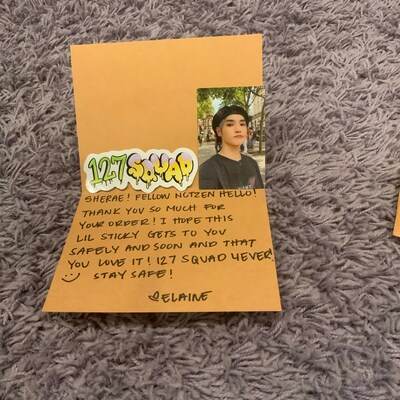 127 SQUAD
SHERAE! FELLOW NCTZEN HELLO!
THANK YOU SO MUCH FOR
YOUR ORDER! I HOPE THIS
LIL STICKY GETS TO YOU
SAFELY AND SOON AND THAT
YOU LOVE IT! 127 SQUAD 4EVER!
STAY SAFE!
ELAINE